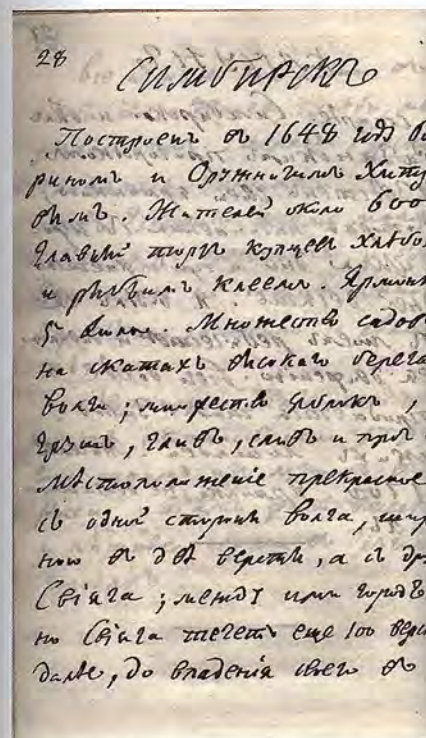 28
Симбирскъ
Построенъ въ 1648 году
риномъ и Оружничимъ Хитр
вымъ. Жителей около 600
Главный торгъ купцевъ хлѣбо
и рыбьимъ клеемъ. Ярмонк
Множество садов
на скатахъ высокаго берега
Волги; множество яблокъ,
Грушъ, слив и проч
Мѣстоположение прекрасное
съ одной стороны Волга, шир
ною въ двѣ версты, а съ др
Свіяга; между ими городъ
но Свіяга течетъ еще 100 верс
далѣе, до впаденія своего въ